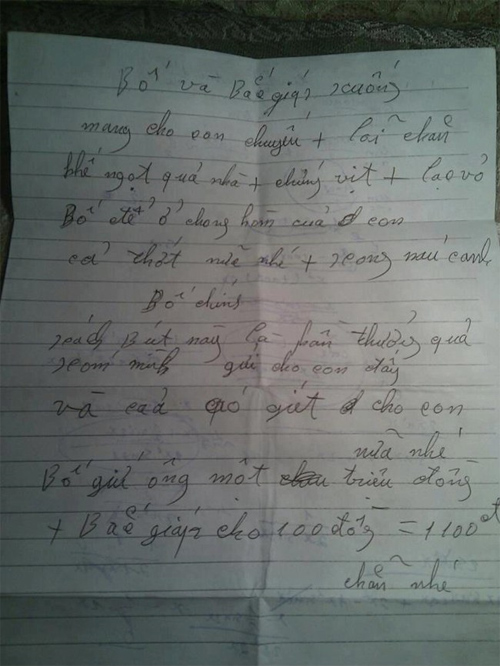 Bố và Bắc giáp xuống
mang cho con chuyến + lai chăn
khế ngọt quả nhà + chứng vịt + lạo vỏ
Bố để ở chong hòm của con
cả thót nữa nhé + xong nấu canh,
Bố chinh
xách Bút này là phần thưởng quả
xóm mình gửi cho con đấy
và cả gó giét cho con
nữa nhé
Bố gửi ông một triệu đồng
+ Bắc giáp cho 100 đồng = 1100đ
chẵn nhé